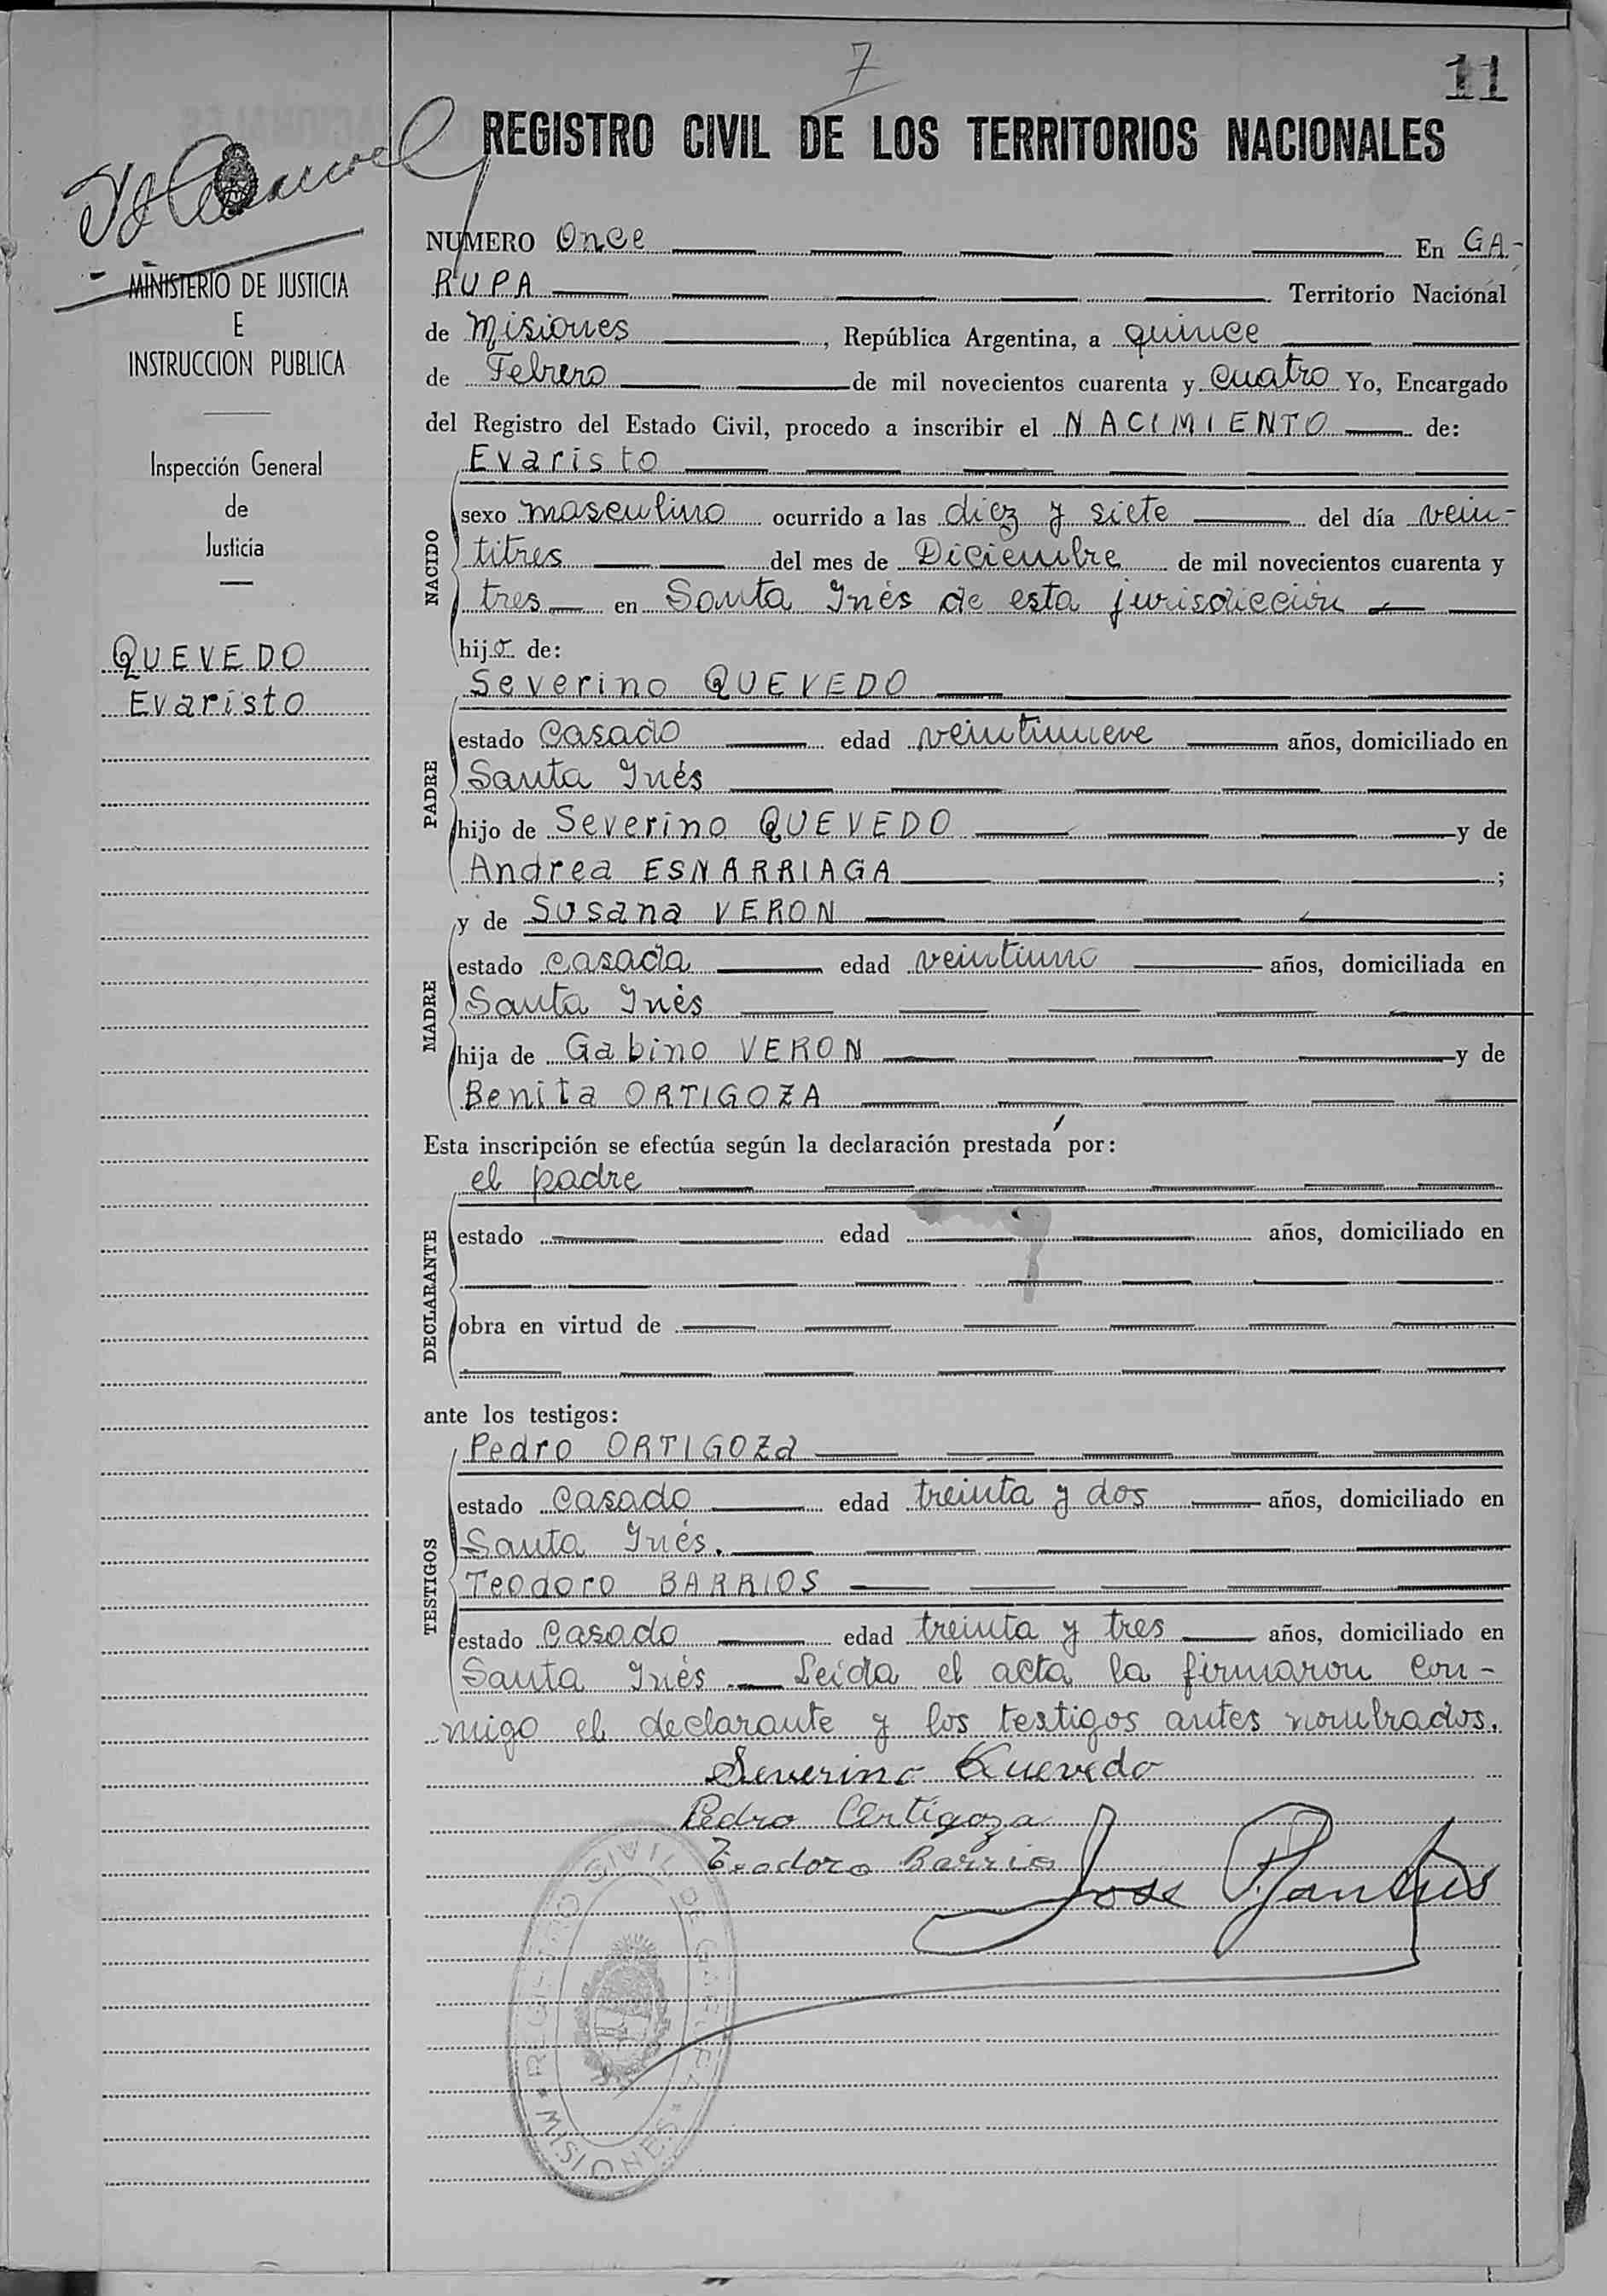 7
11
REGISTRO CIVIL DE LOS TERRITORIOS NACIONALES
MINISTERIO DE JUSTICIA
E
INSTRUCCION PUBLICA
Inspección General
de
Justicia
QUEVEDO
Evaristo
NUMERO Once En GA-
RUPA Territorio Nacional
de Misiones, República Argentina, a quince
de Febrero de mil novecientos cuarenta y cuatro Yo, Encargado
del Registro del Estado Civil, procedo a inscribir el NACIMIENTO de:
Evaristo
NACIDO
sexo masculino ocurrido a las diez y siete del día vein-
titres del mes de Diciembre de mil novecientos cuarenta y
tres en Santa Inés de esta jurisdicción
hijo de:
Severino QUEVEDO
PADRE
estado casado edad veintinueve años, domiciliado en
Santa Inés
hijo de Severino QUEVEDO y de
Andrea ESNARRIAGA ;
y de Susana VERON
MADRE
estado casada edad veintiuno años, domiciliada en
Santa Inés
hija de Gabino VERON y de
Benita ORTIGOZA
Esta inscripción se efectúa según la declaración prestada por:
el padre
DECLARANTE
estado edad años, domiciliado en
obra en virtud de
ante los testigos:
Pedro ORTIGOZa
TESTIGOS
estado casado edad treinta y dos años, domiciliado en
Santa Inés.
Teodoro BARRIOS
estado casado edad treinta y tres años, domiciliado en
Santa Inés. Leída el acta la firmaron con-
migo el declarante y los testigos antes nombrados.
Severino Quevedo
Pedro Ortigoza
Teodoro Barrios
Jose
REGISTRO CIVIL DE
MISIONES